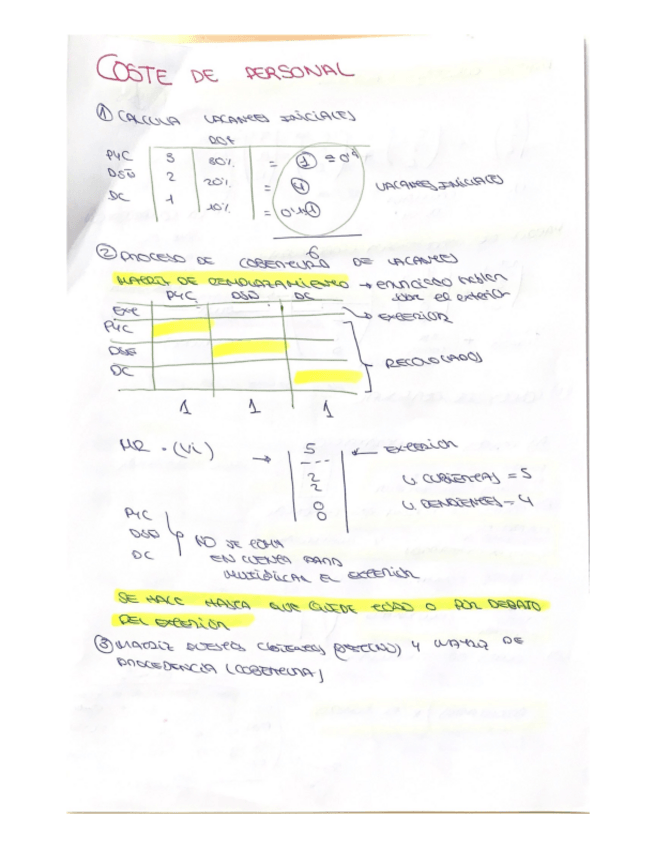 COSTE DE PERSONAL
① CALCULA VACANTES INICIALES
P4C 80% = ①
DSD 2 20% =
DC 1 10% =
VACANTES INICIALES
② PROCESO DE COBERTURA DE VACANTES
MATRIZ DE REMPLAZAMIENTO → enunciado hablan
sobre el exterior
P4C DSD DC
EXT → EXTERIOR
P4C
DSD
DC
RECOLOCADOS
1 1 1
MR · (Vi) → 5 ← EXTERIOR
2
2
0
0
V. CUBIERTAS = 5
V. PENDIENTES = 4
P4C
DSD
DC
NO SE TOMA
EN CUENTA PARA
MULTIPLICAR EL EXTERIOR
SE HACE HASTA QUE QUEDE TODO 0 POR DEBAJO
DEL EXTERIOR
③ MATRIZ PUESTOS Y MATRIZ DE
PROCEDENCIA (COBERTURA)